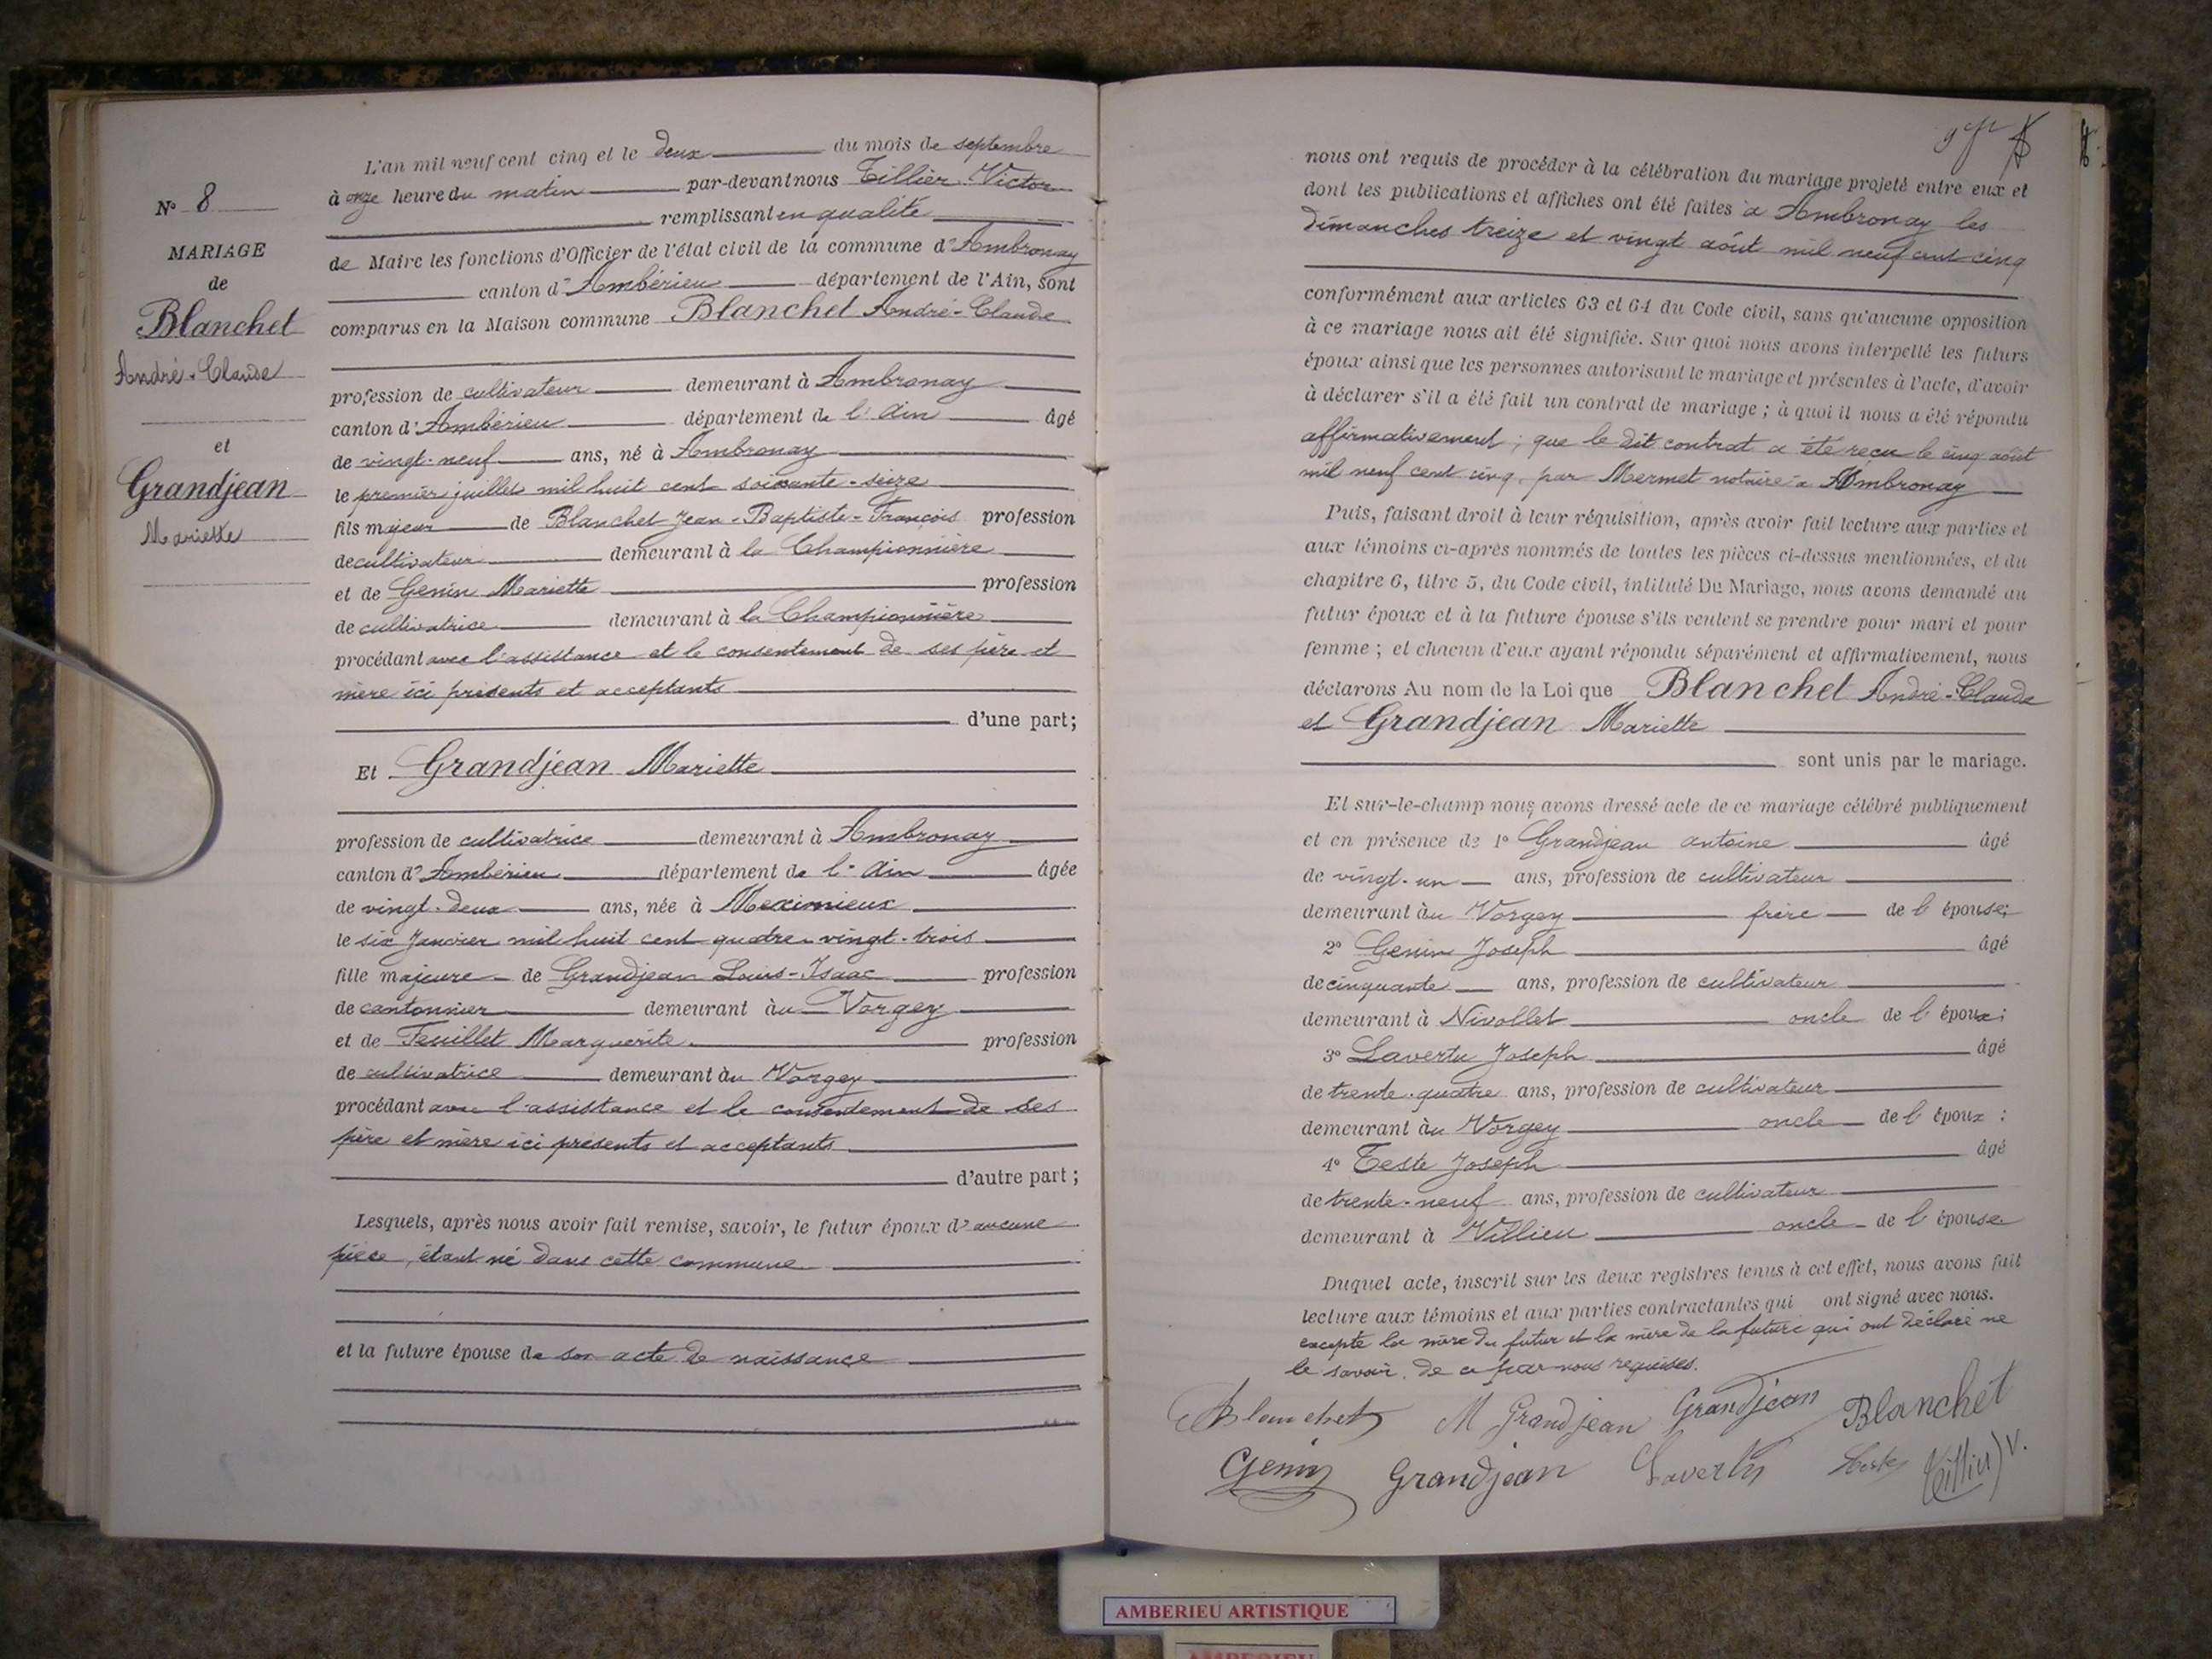 N° 8
MARIAGE
de
Blanchet
André-Claude
et
Grandjean
Mariette
L'an mil neuf cent cinq et le deux du mois de septembre
à onze heure du matin par-devant nous Tillier Victor
remplissant en qualité
de Maire les fonctions d'Officier de l'état civil de la commune d'Ambronay
canton d'Ambérieu département de l'Ain, sont
comparus en la Maison commune Blanchet André-Claude
profession de cultivateur demeurant à Ambronay
canton d'Ambérieu département de l'Ain âgé
de vingt-neuf ans, né à Ambronay
le premier juillet mil huit cent soixante-seize
fils majeur de Blanchet Jean-Baptiste-François profession
de cultivateur demeurant à la Championnière
et de Genin Mariette profession
de cultivatrice demeurant à la Championnière
procédant avec l'assistance et le consentement de ses père et
mère ici présents et acceptants
d'une part;
Et Grandjean Mariette
profession de cultivatrice demeurant à Ambronay
canton d'Ambérieu département de l'Ain âgée
de vingt-deux ans, née à Meximieux
le six Janvier mil huit cent quatre-vingt-trois
fille majeure de Grandjean Louis-Isaac profession
de cantonnier demeurant au Vorgey
et de Feuillet Marguerite profession
de cultivatrice demeurant au Vorgey
procédant avec l'assistance et le consentement de ses
père et mère ici présents et acceptants
d'autre part;
Lesquels, après nous avoir fait remise, savoir, le futur époux d'aucune
pièce, étant né dans cette commune
et la future épouse de son acte de naissance
nous ont requis de procéder à la célébration du mariage projeté entre eux et
dont les publications et affiches ont été faites à Ambronay les
dimanches treize et vingt août mil neuf cent cinq
conformément aux articles 63 et 64 du Code civil, sans qu'aucune opposition
à ce mariage nous ait été signifiée. Sur quoi nous avons interpellé les futurs
époux ainsi que les personnes autorisant le mariage et présentes à l'acte, d'avoir
à déclarer s'il a été fait un contrat de mariage ; à quoi il nous a été répondu
affirmativement ; que le dit contrat a été reçu le cinq août
mil neuf cent cinq, par Mermet notaire à Ambronay
Puis, faisant droit à leur réquisition, après avoir fait lecture aux parties et
aux témoins ci-après nommés de toutes les pièces ci-dessus mentionnées, et du
chapitre 6, titre 5, du Code civil, intitulé Du Mariage, nous avons demandé au
futur époux et à la future épouse s'ils veulent se prendre pour mari et pour
femme ; et chacun d'eux ayant répondu séparément et affirmativement, nous
déclarons Au nom de la Loi que Blanchet André-Claude
et Grandjean Mariette
sont unis par le mariage.
Et sur-le-champ nous avons dressé acte de ce mariage célébré publiquement
et en présence de 1° Grandjean antoine âgé
de vingt-un ans, profession de cultivateur
demeurant au Vorgey frère de l'épouse;
2° Genin Joseph âgé
de cinquante ans, profession de cultivateur
demeurant à Nivollet oncle de l'époux;
3° Lavertu Joseph âgé
de trente-quatre ans, profession de cultivateur
demeurant au Vorgey oncle de l'époux :
4° Teste Joseph âgé
de trente-neuf ans, profession de cultivateur
demeurant à Villieu oncle de l'épouse
Duquel acte, inscrit sur les deux registres tenus à cet effet, nous avons fait
lecture aux témoins et aux parties contractantes qui ont signé avec nous.
excepté la mère du futur et la mère de la future qui ont déclaré ne
le savoir, de ce par nous requises.
Blanchet M Grandjean Grandjean Blanchet
Genin Grandjean Lavertu Teste Tillier V.
AMBERIEU ARTISTIQUE
AMBERIEU